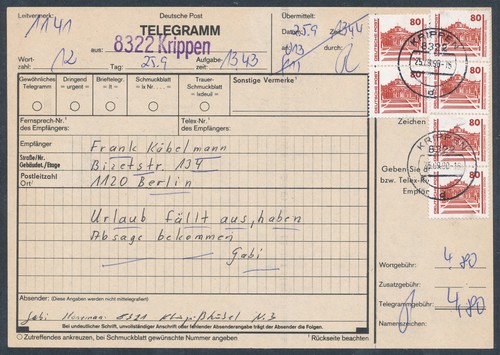 Leitvermerk: 1141
Deutsche Post
TELEGRAMM
aus: 8322 Krippen
Wort-
zahl: 12
Tag: 25.9
Aufgabe-
zeit: 1343
Übermittelt:
Datum: 25.9
Zeit: 1344
an:
durch:
Gewöhnliches
Telegramm
Dringend
= urgent =
Brieftelegr.
= lt =
Schmuckblatt
= lx Nr. .... =
Trauer-
Schmuckblatt
= lxdeuil =
Sonstige Vermerke:¹
Fernsprech-Nr.¹
des Empfängers:
Telex-Nr.¹
des Empfängers:
Empfänger
Frank Köbelmann
Straße/Nr.
Gebäudet./Etage
Bizetstr. 134
Postleitzahl
Ort¹
1120 Berlin
Urlaub fällt aus, haben
Absage bekommen
Gabi
Absender: (Diese Angaben werden nicht mittelegrafiert)
Gabi
8321
Bei undeutlicher Schrift, unvollständiger Anschrift oder fehlender Absenderangabe trägt der Absender die Folgen.
Zutreffendes ankreuzen, bei Schmuckblatt gewünschte Nummer angeben
¹ Rückseite beachten
DEUTSCHE POST 80
80
80
80
80
80
KRIPPEN
8322
d
KRIPPEN
8322
Zeichen
Geben Sie
bzw. Telex-
Empfän
Wortgebühr: 4,80
Zusatzgebühr:
Telegrammgebühr: 4,80
Namenszeichen: